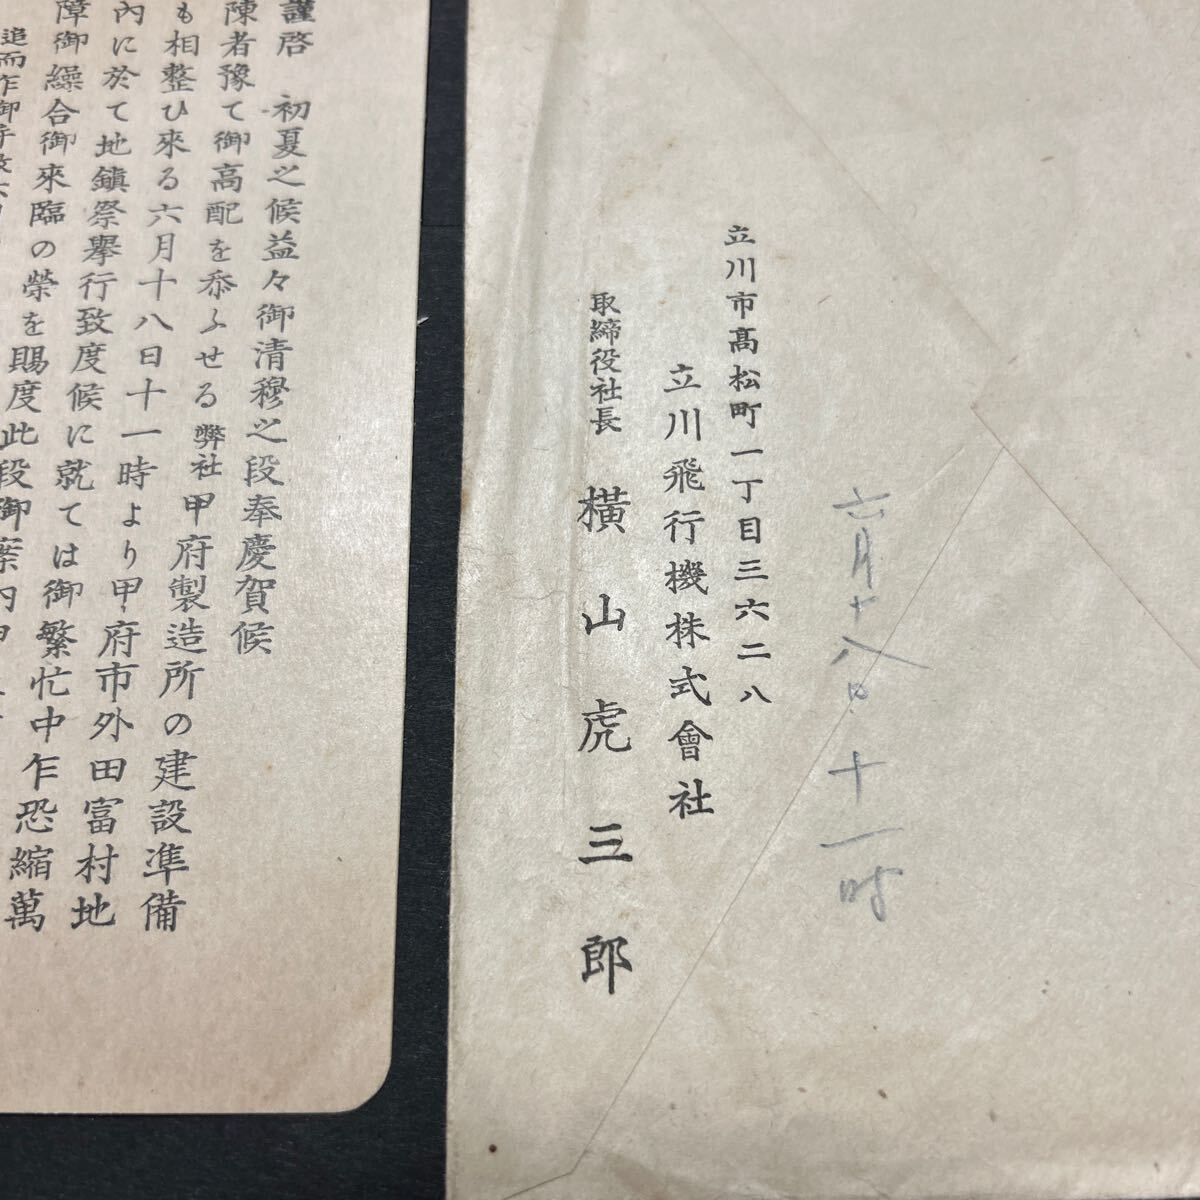 六月十八日十一時
立川市髙松町一丁目三六二八
立川飛行機株式會社
取締役社長 橫山虎三郎
謹啓 初夏之候益々御清穆之段奉慶賀候
陳者豫て御高配を忝ふせる弊社甲府製造所の建設準備
も相整ひ來る六月十八日十一時より甲府市外田富村地
內に於て地鎭祭擧行致度候に就ては御繁忙中乍恐縮萬
障御繰合御來臨の榮を賜度此段御案內申
追而乍御手數六月